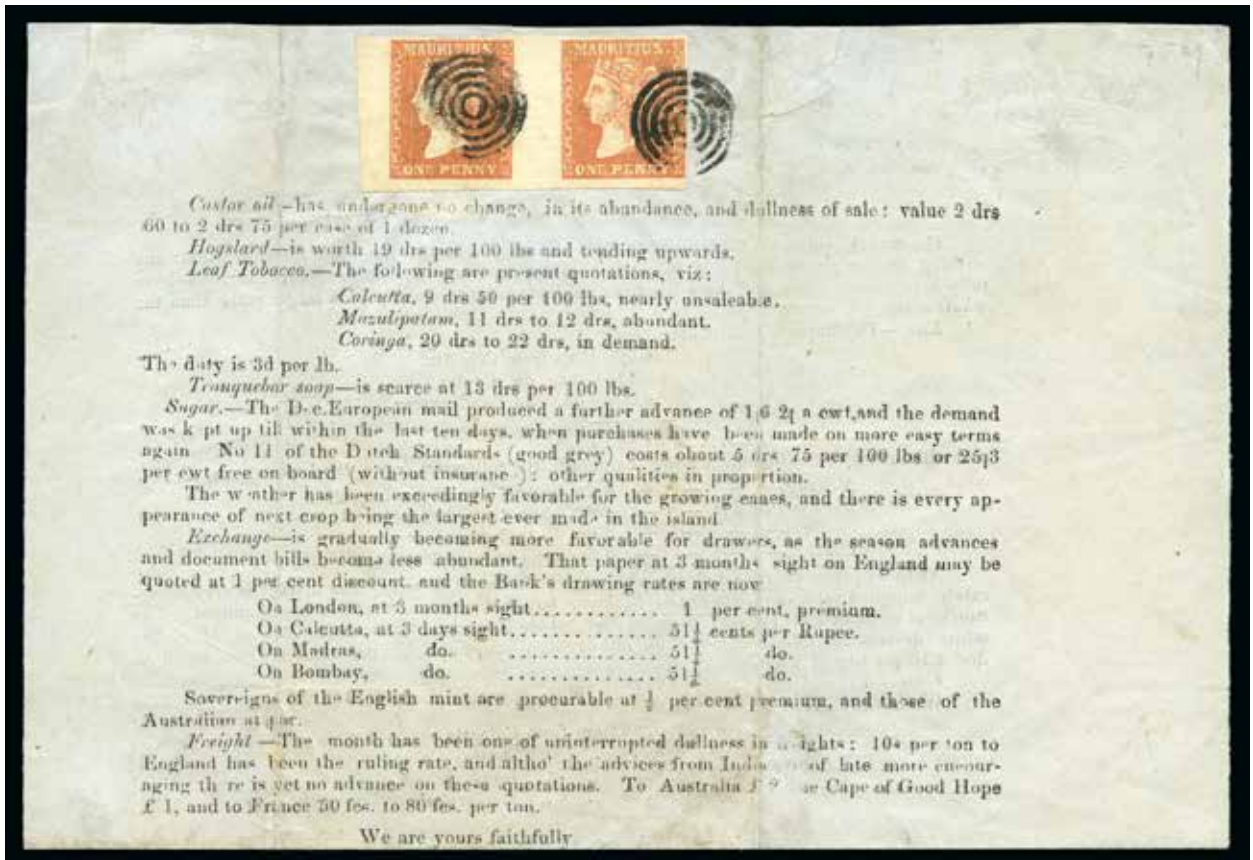 MAURITIUS. MAURITIUS.
ONE PENNY ONE PENNY
Castor oil—has undergone no change, in its abundance, and dullness of sale: value 2 drs
60 to 2 drs 75 per case of 1 dozen.
Hogslard—is worth 19 drs per 100 lbs and tending upwards.
Leaf Tobacco.—The following are present quotations, viz:
Calcutta, 9 drs 50 per 100 lbs, nearly unsaleable.
Mazulipatam, 11 drs to 12 drs, abundant.
Coringa, 20 drs to 22 drs, in demand.
The duty is 3d per lb.
Tranquebar soap—is scarce at 13 drs per 100 lbs.
Sugar.—The Dec. European mail produced a further advance of 1/6 2/ a cwt, and the demand
was kept up till within the last ten days, when purchases have been made on more easy terms
again No 11 of the Dutch Standards (good grey) costs obout 5 drs 75 per 100 lbs or 25/3
per cwt free on board (without insurance): other qualities in proportion.
The weather has been exceedingly favorable for the growing canes, and there is every ap-
pearance of next crop being the largest ever made in the island
Exchange—is gradually becoming more favorable for drawers, as the season advances
and document bills become less abundant. That paper at 3 months sight on England may be
quoted at 1 per cent discount, and the Bank's drawing rates are now
On London, at 3 months sight............ 1 per cent, premium.
On Calcutta, at 3 days sight............ 51½ cents per Rupee.
On Madras, do. ............ 51½ do.
On Bombay, do. ............ 51½ do.
Sovereigns of the English mint are procurable at ½ per cent premium, and those of the
Australian at par.
Freight—The month has been one of uninterrupted dullness in : 10s per ton to
England has been the ruling rate, and altho' the advices from of late more encour-
aging there is yet no advance on these quotations. To Australia £ Cape of Good Hope
£ 1, and to France 50 fcs. to 80 fcs. per ton.
We are yours faithfully